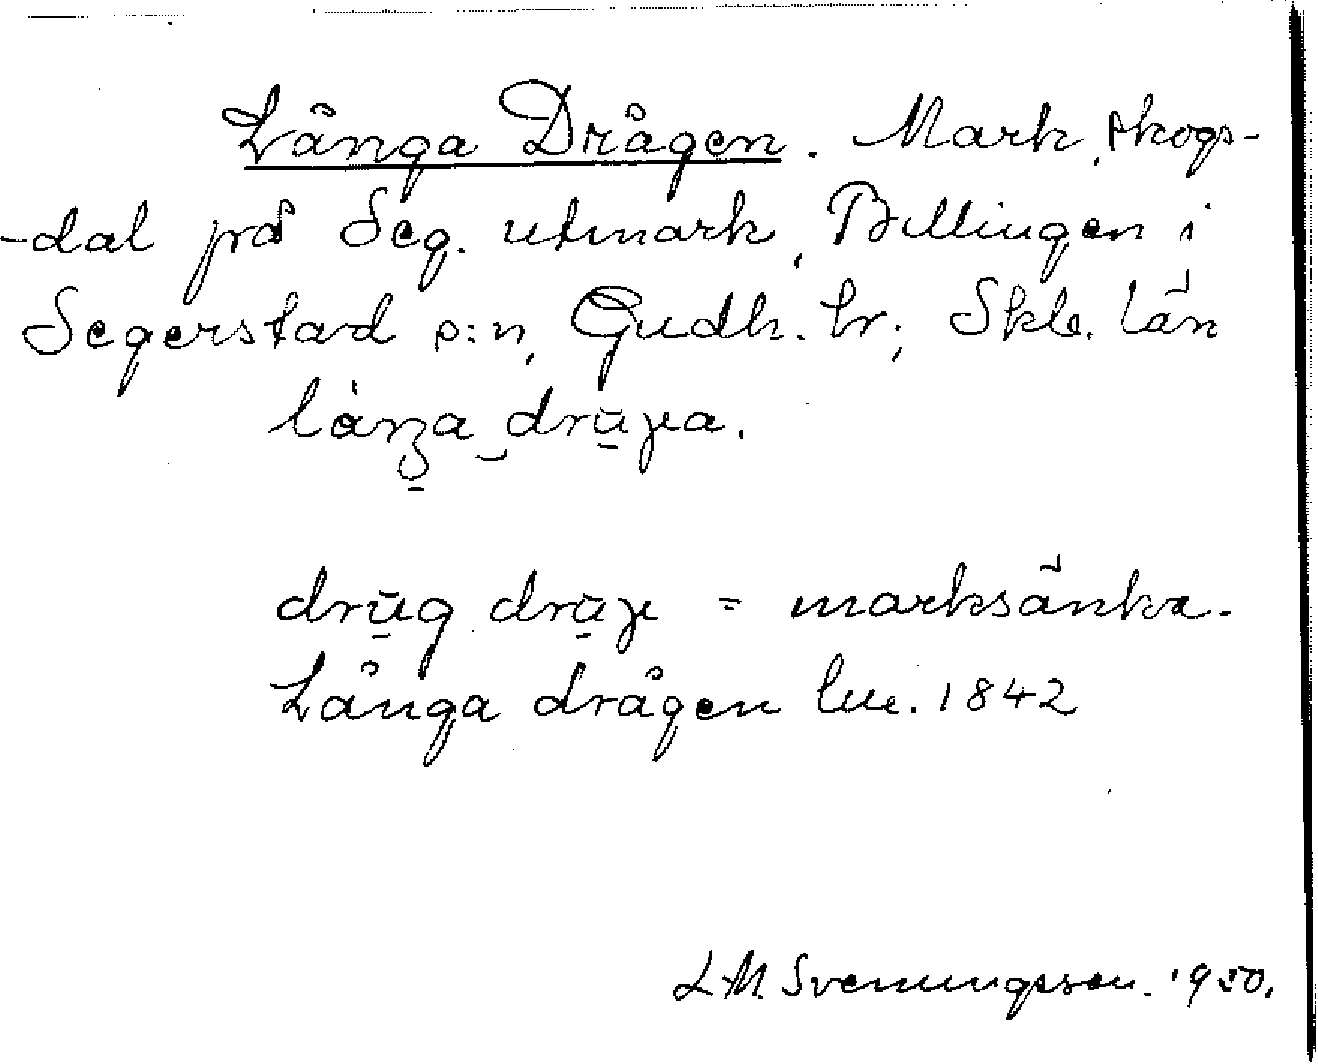 Långa Drågen. Mark, skogs-
-dal på Seg. utmark, Billingen i
Segerstad s:n, Gudh. hr; Skb. län
drūg = marksänka.
Långa drågen lm. 1842
L.M. Svenungsson. 1950.